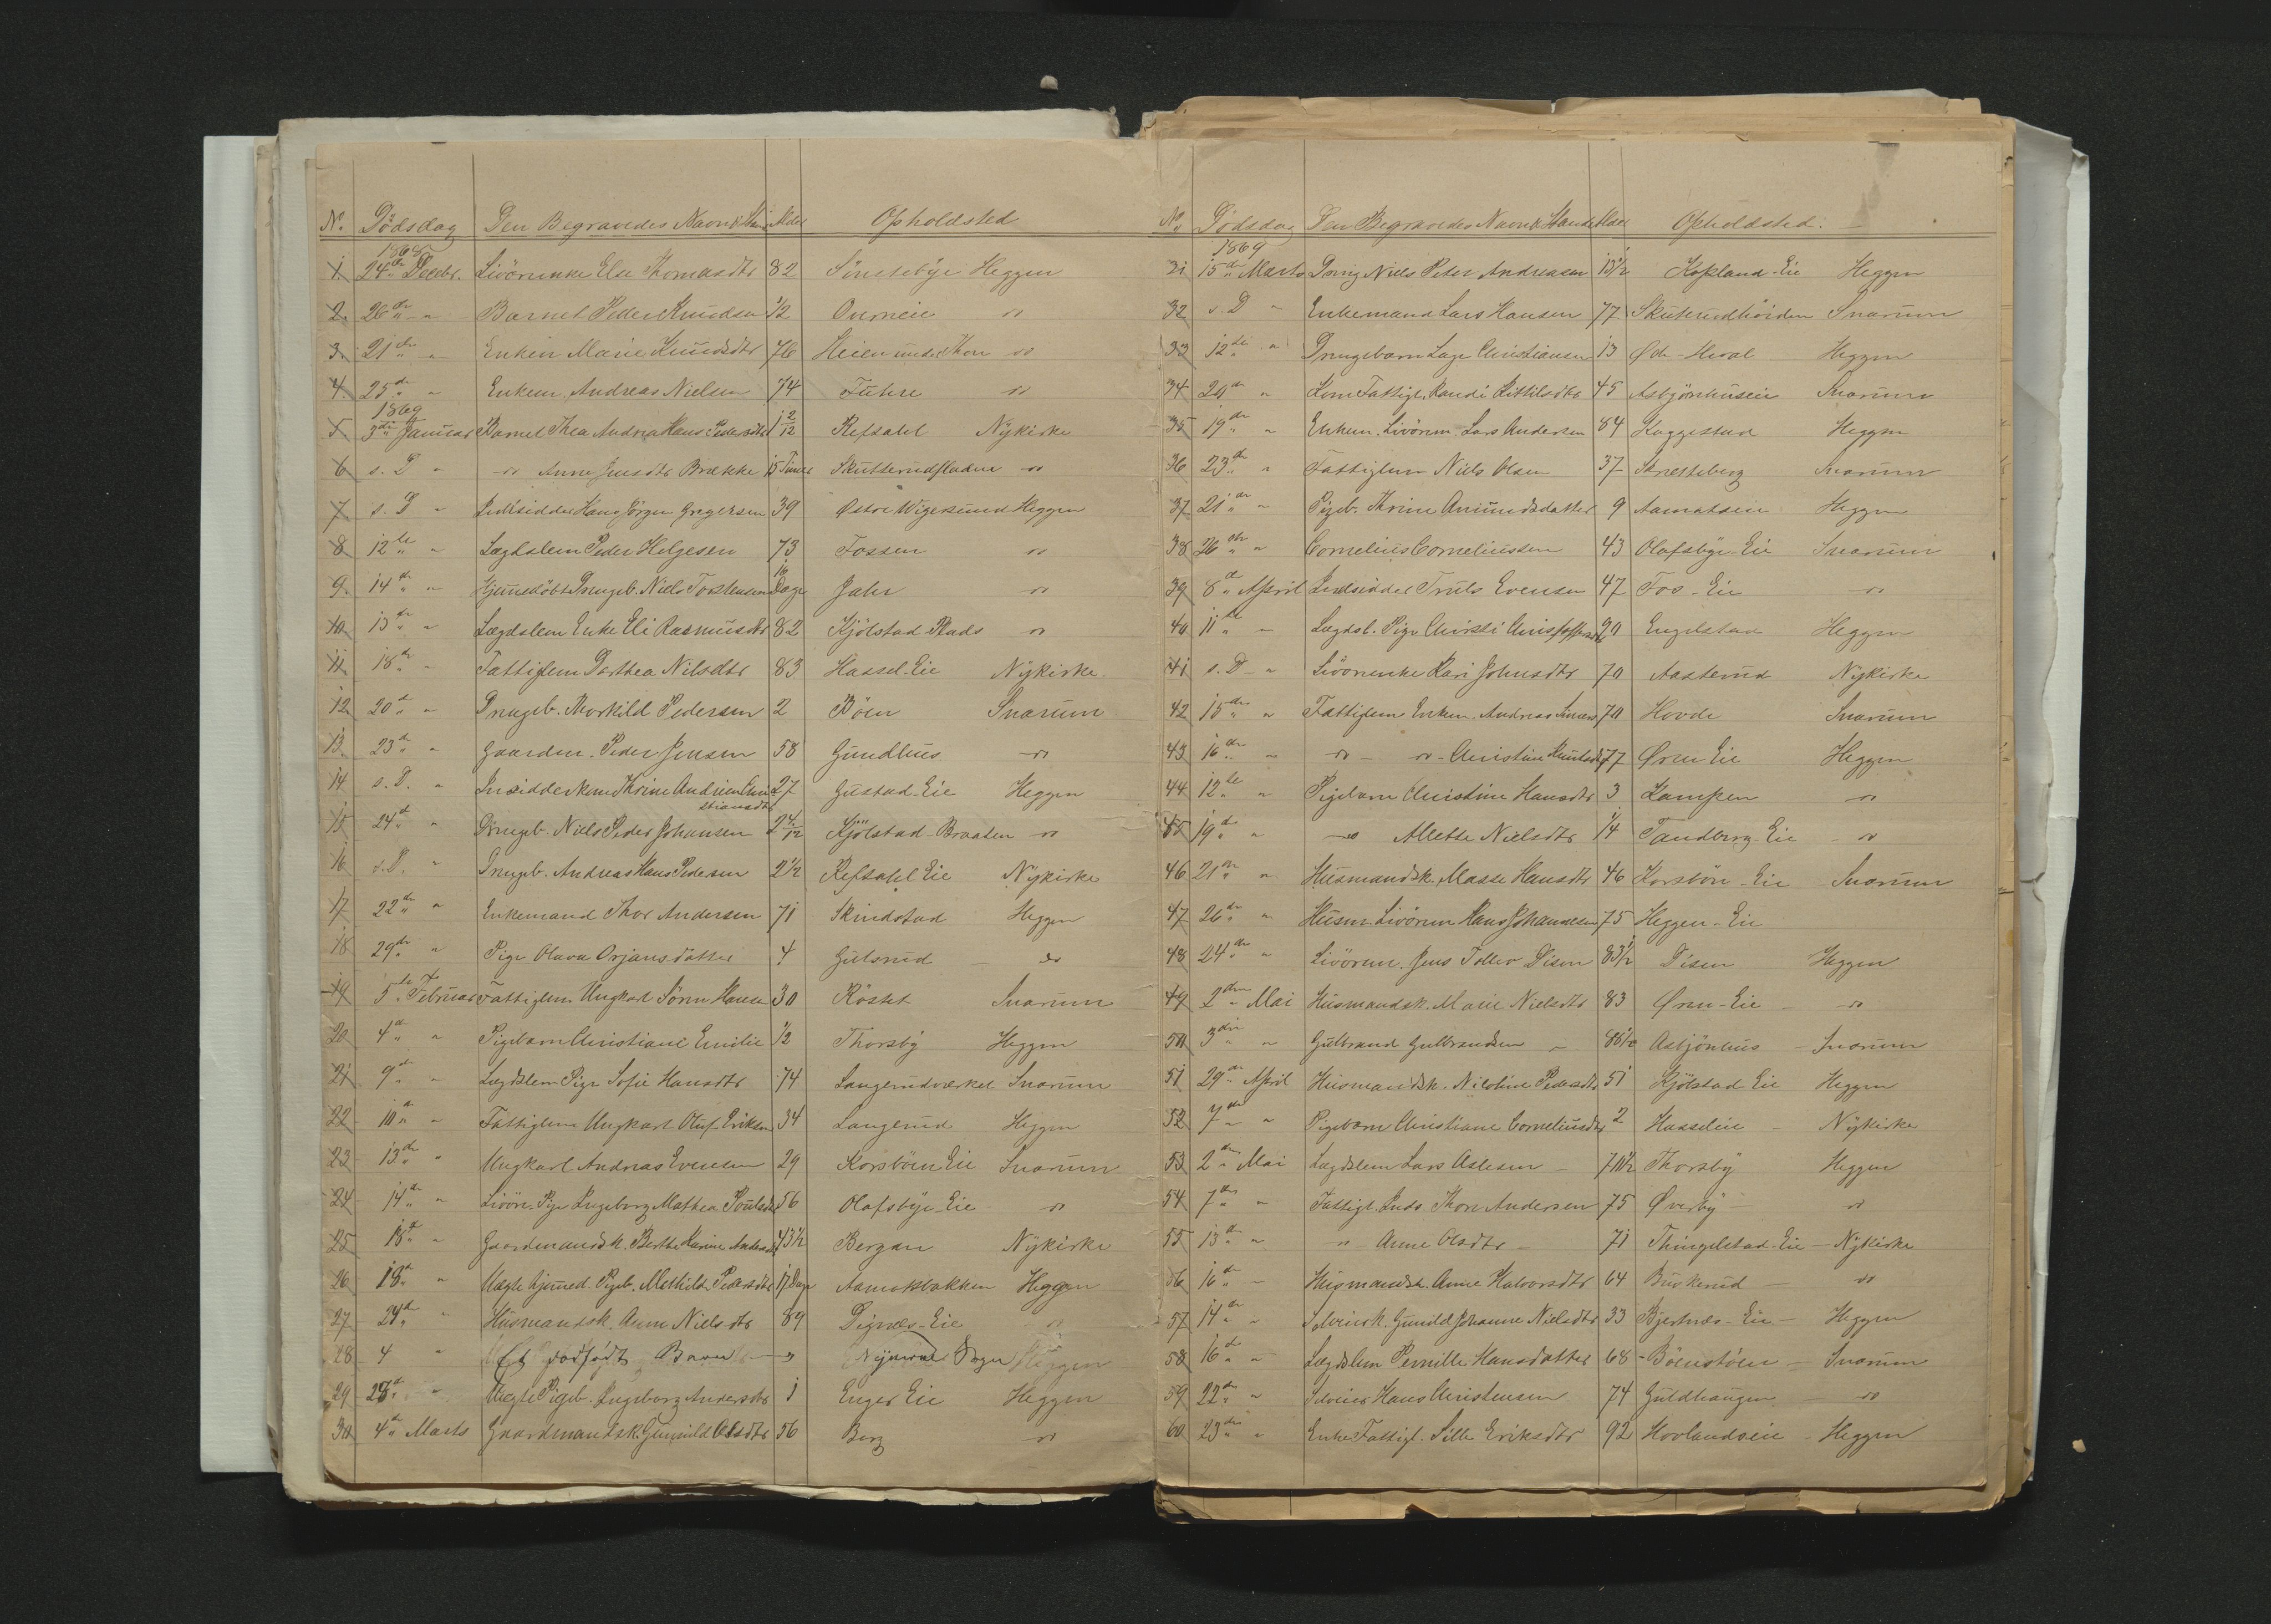 No. Dödsdag Den Begravedes Navn & Stand Alder Opholdsted
1868
1. 24de Decebr. Livörenke Else Thomasdtr 82 Sönstebye Heggen
2. 26de " Barnet Peder Knudsen 1/2 Overneie do
3. 21de " Enken Marie Knudsdtr 76 Heien under Thon do
4. 25de " Enkem. Andreas Nielsen 74 Fuhre do
1869
5. 3die Januar Barnet Thea Andrea Hans Pedersdtr 1 2/12 Refsahl Nykirke
6 s. D " do Anne Jensdtr Brække 15 Timer Skutterudfladen do
7 s. D " Indsidder Hans Jörgen Gregersen 39 Østre Wigersund Heggen
8 12te " Lægdslem Peder Helgesen 73 Fossen do
9. 14de " Hjemdöbt Drengeb. Niels Torstensen 16 Dage Jahr do
10 13de " Lægdslem Enke Eli Rasmusdtr 82 Kjölstad Plads do
11. 18de " Fattiglem Dorthea Nilsdtr 83 Hassel-Eie Nykirke
12 20de " Drengeb. Thorkild Pedersen 2 Böen Snarum
13. 23de " Gaardm. Peder Jensen 58 Gundhus do
14 s. D. " Insidderkone Thrine Andrien Chri 27 Gustad-Eie Heggen
stiansdtr
15 24de " Drengeb. Niels Peder Johansen 2 4/12 Kjölstad-Braaten do
16 s. D. " Drengeb. Andreas Hans Pedersen 2 1/2 Refsahl Eie Nykirke
17 22de " Enkemand Thor Andersen 71 Skindstad Heggen
18 29de " Pige Olava Orjansdatter 4 Gulsrud do
19 5te Februar Fattiglem Ungkarl Sörен Hansen 30 Röstet Snarum
20 4de " Pigebarn Christiane Emilie 1/2 Thorsby Heggen
21 9de " Lægdslem Pige Sofie Hansdtr 74 Langerudværket Snarum
22 10de " Fattiglem Ungkarl Oluf Eriksen 34 Langerud Heggen
23 13de " Ungkarl Andreas Evensen 29 Korsböen Eie Snarum
24 14de " Livör. Pige Ingeborg Mathea Poulsdtr 56 Olafsbye-Eie do
25 18de " Gaardmandsk. Berthe Karine Andersdtr 43 1/2 Bergan Nykirke
26 18de " Uægte hjemed. Pigeb. Mathilde Pedersdtr 17 Dage Aamotbakken Heggen
27 24de " Husmandsk. Anne Nielsdtr 89 Dignæs-Eie do
28 4 " Et dödfödt Barn " Heggen
29 28de " Uægte Pigeb. Ingeborg Andersdtr 1 Enger Eie Heggen
30 4de Marts Gaardmandsk. Gunnild Olsdtr 56 Berg do
No. Dödsdag Den Begravedes Navn & Stand Alder Opholdsted.
1869
31 15de Marts Dreng Niels Peter Andreasen 13 1/2 Kopland-Eie Heggen
32 s. D " Enkemand Lars Hansen 77 Skuterudhöiden Snarum
33 12te " Drengebarn Lage Christiansen 13 Øde-Moral Heggen
34 20de " Kone Fattigl. Randi Kittilsdtr 45 Asbjönhuseie Snarum
35 19de " Enkem. Livörem. Lars Andersen 84 Kaggestad Heggen
36 23de " Fattiglem Niels Olsen 37 Snarum
37 21de " Pigeb. Thrine Amundsdatter 9 Aamotseie Heggen
38 26de " Cornelius Corneliussen 43 Olafsbye-Eie Snarum
39 8de April Indsidder Truls Evensen 47 Fos-Eie do
40 11te " Lægdsl. Pige Christi Christoffersdtr 90 Engelstad Heggen
41 s. D " Livörenke Kari Johnsdtr 70 Aasterud Nykirke
42 15de " Fattiglem Enkem. Andreas 70 Hovde Snarum
43 16de " do do Christine Knudsdtr 77 Øren Eie Heggen
44 12te " Pigebarn Christine Hansdtr 3 Kampen do
45 19de " do Alette Nielsdtr 1/4 Tandberg-Eie do
46 21de " Husmandsk. Masse Hansdtr 46 Korsbön-Eie Snarum
47 26de " Husm. Livörem Hans Johannesen 75 Heggen-Eie
48 24de " Livörem. Jens Tollev Disen 83 1/2 Disen Heggen
49 2den Mai Husmandsk. Marie Nielsdtr 83 Øren-Eie do
50 3die " Gulbrand Gulbrandsen 88 1/2 Asbjönhus Snarum
51 29de April Husmandsk. Nicoline Pedersdtr 51 Kjölstad Eie Heggen
52 7de " Pigebarn Christiane Corneliusdtr 2 Hasseleie Nykirke
53 2den Mai Lægdslem Lars Aslesen 70 1/2 Thorsby Heggen
54 7de " Fattigl. Inds. Thore Andersen 75 Øverby do
55 13de " " Anne Olsdtr 71 Thingelstad-Eie Nykirke
56 16de " Husmandsk. Anne Halvorsdtr 64 Buskerud do
57 14de " Selveiersk. Gunild Johanne Nielsdtr 33 Bjertnæs-Eie Heggen
58 16de " Lægdslem Pernille Hansdatter 68 Böenstöen Snarum
59 22de " Selveier Hans Christensen 74 Guldhaugen do
60 23de " Enke Fattigl. Sille Eriksdtr 92 Hovlandseie Heggen